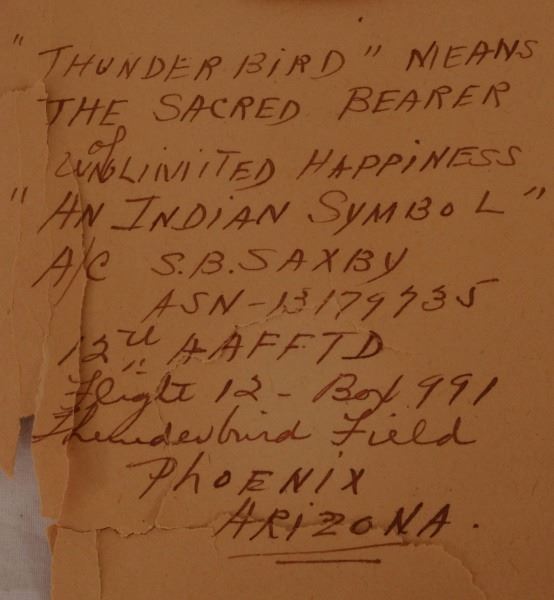 "THUNDERBIRD" MEANS
THE SACRED BEARER
of
UNLIMITED HAPPINESS
"AN INDIAN SYMBOL"
A/C S.B. SAXBY
ASN-13179735
12TH AAFFTD
Flight 12 - Box 991
Thunderbird Field
PHOENIX
ARIZONA.